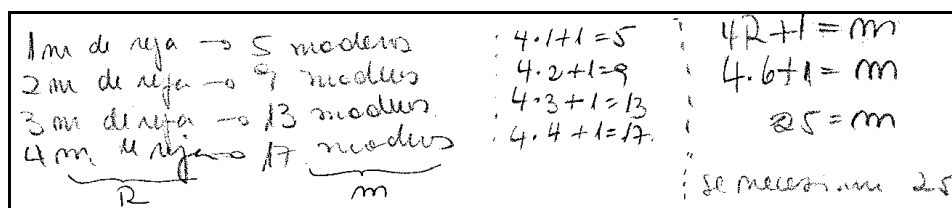 1m de reja → 5 maderos
2m de reja → 9 maderos
3m de reja → 13 maderos.
4m de reja → 17 maderos
R
m
4·1+1=5
4·2+1=9
4·3+1=13
4·4+1=17.
4R+1=m
4·6+1=m
25=m
se necesitan 25